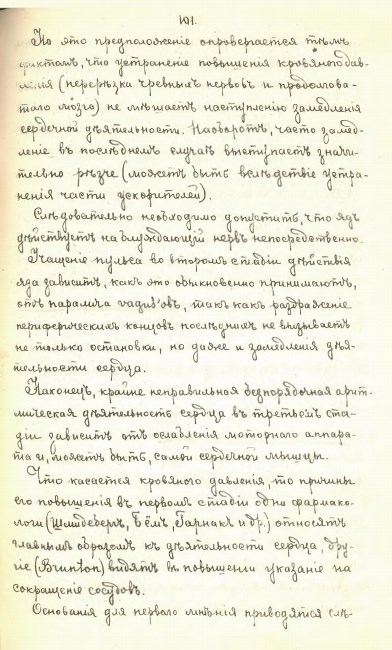 101.
Но это предположенiе опровергается тѣмъ
фактомъ, что устраненiе повышенiя кровяного дав-
ленiя (перерѣзка чревныхъ нервовъ и продолгова-
таго мозга) не мѣшаетъ наступленiю замедленiя
сердечной дѣятельности. Наоборотъ, часто замед-
ленiе въ послѣднемъ случаѣ выступаетъ значи-
тельно рѣзче (можетъ быть вслѣдствiе устра-
ненiя части ускорителей).
Слѣдовательно необходимо допустить, что ядъ
дѣйствуетъ на блуждающiй нервъ непосредственно.
Учащенiе пульса во второмъ стадiи дѣйствiя
яда зависитъ, какъ это обыкновенно принимаютъ,
отъ паралича vagus'овъ, такъ какъ раздраженiе
периферическихъ концовъ послѣднихъ не вызываетъ
не только остановки, но даже и замедленiя дѣя-
тельности сердца.
Наконецъ, крайне неправильная безпорядочная арит-
мическая дѣятельность сердца въ третьемъ ста-
дiи зависитъ отъ ослабленiя моторнаго аппара-
та и, можетъ быть, самой сердечной мышцы.
Что касается кровяного давленiя, то причины
его повышенiя въ первомъ стадiи одни фармако-
логи (Шмидебергъ, Бёмъ, Гарнакъ и др.) относятъ
главнымъ образомъ къ дѣятельности сердца, дру-
гiе (Brunton) видятъ въ повышенiи указанiе на
сокращенiе сосудовъ.
Основанiя для перваго мнѣнiя приводятся слѣ-